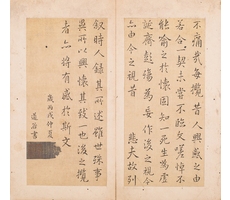 不痛哉每攬昔人興感之由
若合一契未嘗不臨文嗟悼不
能喻之於懷固知一死生為虛
誕齊彭殤為妄作後之視今
亦由今之視昔 悲夫故列
叙時人錄其所述雖世殊事
異所以興懷其致一也後之攬
者亦將有感於斯文
仲夏
書